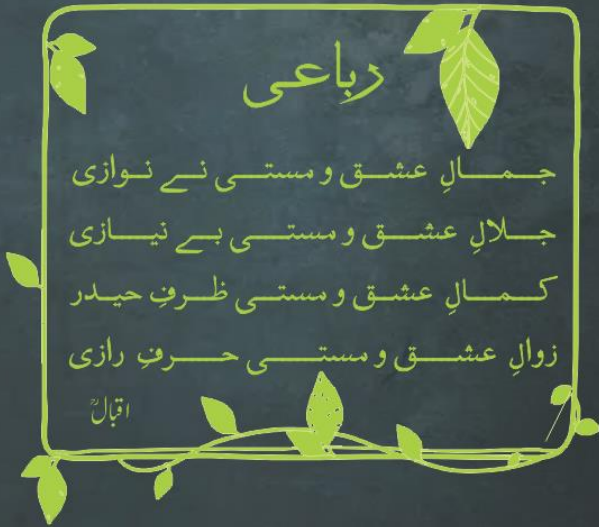 رباعی
جمالِ عشق و مستی نے نوازی
جلالِ عشق و مستی بے نیازی
کمالِ عشق و مستی ظرفِ حیدر
زوالِ عشق و مستی حرفِ رازی
اقبالؒ